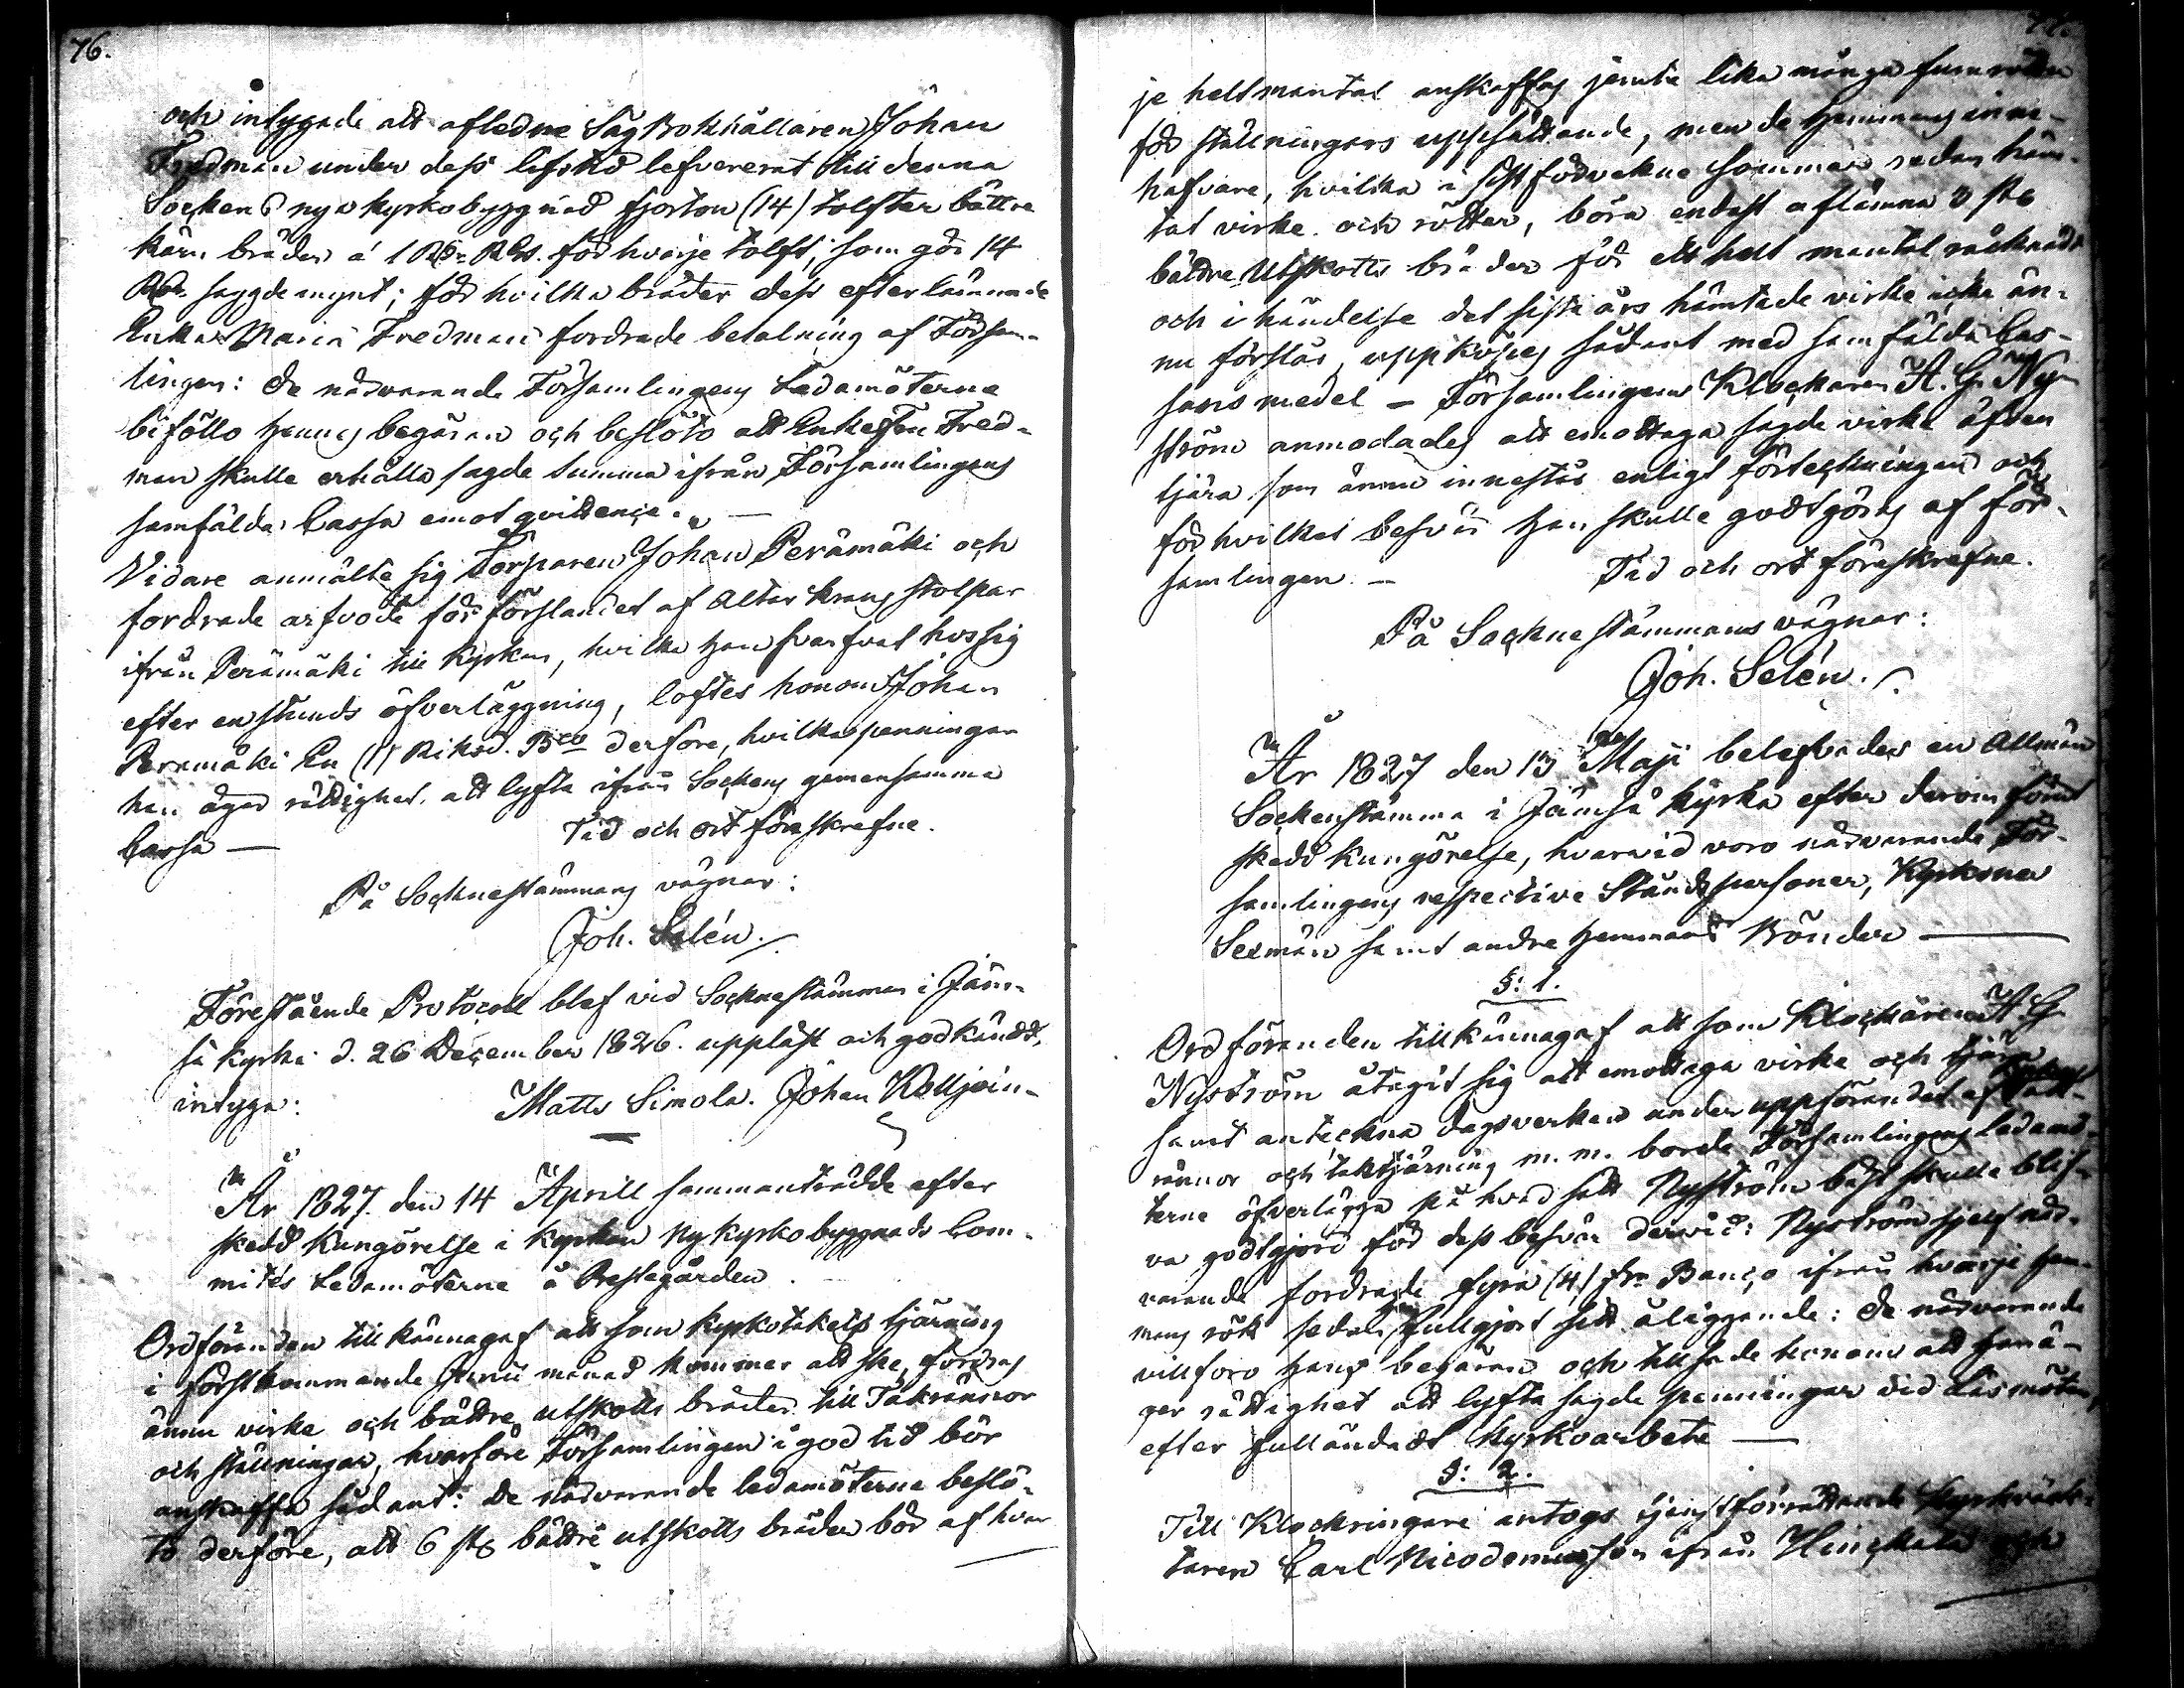 76.
och intygade att afledne Såg Bokhållaren Johan
Fredman under dess lifstid lefvererat till denna
Sockens nya kyrkobyggnad fjorton (14) tolfter bättre
bräder á 1 Rd. RGs. för hvarje tolft, som gör 14
Rdr sagde mynt; för hvilka bräder dess efterlämnade
Enka Maria Fredman fordrade betalning af Försam-
lingen: De närvarande Församlingens Ledamöterne
biföllo hennes begäran och beslöto att Enkefru Fred-
man skulle erhålla sagde summa ifrån Församlingens
samfälda Cassa emot qvittence. —
Vidare anmälte sig Torparen Johan Perämäki och
fordrade arfvode för förslandet af Altar krans stolpar
ifrån Perämäki till kyrkan, hvilka han svarfvat hos sig
efter en stunds öfverläggning, loftes honom Johan
Peremäki En (1) Riksd. Bco derföre, hvilka penningar
han äger rättighet att lyfta ifrån Sockens gemensamma
Cassa — Tid och ort föreskrefne.
På Socknestämmans vägnar:
Joh. Selén.
Förestående Protocoll blef vid Socknestämman i Jäm-
sä kyrka d. 26 December 1826. uppläst och godkändt,
intyga: Matts Simola. Johan Kolljoin-
År 1827. den 14 Aprill sammanträdde efter
skedd kungörelse i kyrkan Ny kyrkobyggnads Com-
mités Ledamöterne å Prestegården.
Ordföranden tillkännagaf att som kyrkotakets tjärning
i förstkommande Junii månad kommer att ske, fordras
ännu virke och bättre utskotts bräder till Takrännor
och ställningar, hvarföre Församlingen i god tid bör
anskaffa sådant: De närvarande ledamöterne beslö-
to derföre, att 6 st. bättre utskotts bräder bör af hvar-
je helt mantal anskaffas jemte lika många furu rötter
för ställningars uppsättande, men de Hemmans inne-
hafvare, hvilka i sist förvekne sommar redan häm-
tat virke och rötter, böra endast aflämna 3 st.
bättre Utskotts bräder för ett helt mantal räknadt
och i händelse det sista års hämtade virke icke än-
nu förslår, uppköpes sådant med samfälda Cas-
sans medel — Församlingens Klockaren A. G. Ny-
ström anmodades att emottaga sagde virke äfven
tjära som ännu innestår enligt förteckningen och
för hvilket besvär han skulle godtgöras af för-
samlingen. — Tid och ort föreskrefne.
På Socknestämmans vägnar:
Joh. Selén.
År 1827 den 13 Maji belefvades en Allmän
Sockenstämma i Jämsä kyrka efter derom förut
skedd kungörelse, hvarvid voro närvarande För-
samlingens respective Ståndspersoner, Kyrkones
Sexmän samt andre Hemmans Bönder —
§: 1.
Ordföranden tillkännagaf att som Klockaren A G
Nyström åtagit sig att emottaga virke och tjära
samt anteckna dagsverken under uppförandet af Tak-
rännor och taktjärning m. m. borde Församlingens ledamö-
terne öfverlägga på hvad sätt Nyström bäst skulle blif-
va godtgjord för dess besvär dervid: Nyström sjelf när-
varande fordrade fyra (4) Banco ifrån hvarje Hem-
mans rök sedan fullgjort sitt åliggande: De närvarande
villforo hans begäran och tillsade honom att han ä-
ger rättighet att lyfta sagde penningar vid Läsmöten,
efter fulländadt kyrkoarbete —
§: 2.
Till Klockringare antogs tjenstförrättande Kyrkväk-
taren Carl Nicodemusson ifrån